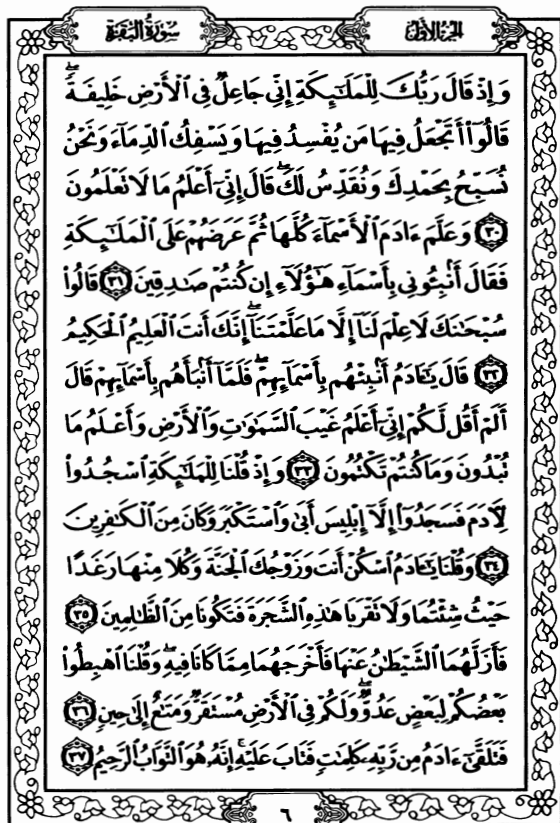 سُورَةُ الْبَقَرَةِ
الجُزْءُ الأَوَّلُ
وَإِذْ قَالَ رَبُّكَ لِلْمَلَٰٓئِكَةِ إِنِّي جَاعِلٌ فِي الْأَرْضِ خَلِيفَةً ۖ
قَالُوٓا۟ أَتَجْعَلُ فِيهَا مَن يُفْسِدُ فِيهَا وَيَسْفِكُ الدِّمَآءَ وَنَحْنُ
نُسَبِّحُ بِحَمْدِكَ وَنُقَدِّسُ لَكَ ۖ قَالَ إِنِّيٓ أَعْلَمُ مَا لَا تَعْلَمُونَ
﴿٣٠﴾ وَعَلَّمَ ءَادَمَ الْأَسْمَآءَ كُلَّهَا ثُمَّ عَرَضَهُمْ عَلَى الْمَلَٰٓئِكَةِ
فَقَالَ أَنۢبِـُٔونِي بِأَسْمَآءِ هَٰٓؤُلَآءِ إِن كُنتُمْ صَٰدِقِينَ ﴿٣١﴾ قَالُوا۟
سُبْحَٰنَكَ لَا عِلْمَ لَنَآ إِلَّا مَا عَلَّمْتَنَآ ۖ إِنَّكَ أَنتَ الْعَلِيمُ الْحَكِيمُ
﴿٣٢﴾ قَالَ يَٰٓـَٔادَمُ أَنۢبِئْهُم بِأَسْمَآئِهِمْ ۖ فَلَمَّآ أَنۢبَأَهُم بِأَسْمَآئِهِمْ قَالَ
أَلَمْ أَقُل لَّكُمْ إِنِّيٓ أَعْلَمُ غَيْبَ السَّمَٰوَٰتِ وَالْأَرْضِ وَأَعْلَمُ مَا
تُبْدُونَ وَمَا كُنتُمْ تَكْتُمُونَ ﴿٣٣﴾ وَإِذْ قُلْنَا لِلْمَلَٰٓئِكَةِ اسْجُدُوا۟
لِـَٔادَمَ فَسَجَدُوٓا۟ إِلَّآ إِبْلِيسَ أَبَىٰ وَاسْتَكْبَرَ وَكَانَ مِنَ الْكَٰفِرِينَ
﴿٣٤﴾ وَقُلْنَا يَٰٓـَٔادَمُ اسْكُنْ أَنتَ وَزَوْجُكَ الْجَنَّةَ وَكُلَا مِنْهَا رَغَدًا
حَيْثُ شِئْتُمَا وَلَا تَقْرَبَا هَٰذِهِ الشَّجَرَةَ فَتَكُونَا مِنَ الظَّٰلِمِينَ ﴿٣٥﴾
فَأَزَلَّهُمَا الشَّيْطَٰنُ عَنْهَا فَأَخْرَجَهُمَا مِمَّا كَانَا فِيهِ ۖ وَقُلْنَا اهْبِطُوا۟
بَعْضُكُمْ لِبَعْضٍ عَدُوٌّ ۖ وَلَكُمْ فِي الْأَرْضِ مُسْتَقَرٌّ وَمَتَٰعٌ إِلَىٰ حِينٍ ﴿٣٦﴾
فَتَلَقَّىٰٓ ءَادَمُ مِن رَّبِّهِۦ كَلِمَٰتٍ فَتَابَ عَلَيْهِ ۚ إِنَّهُۥ هُوَ التَّوَّابُ الرَّحِيمُ ﴿٣٧﴾
٦